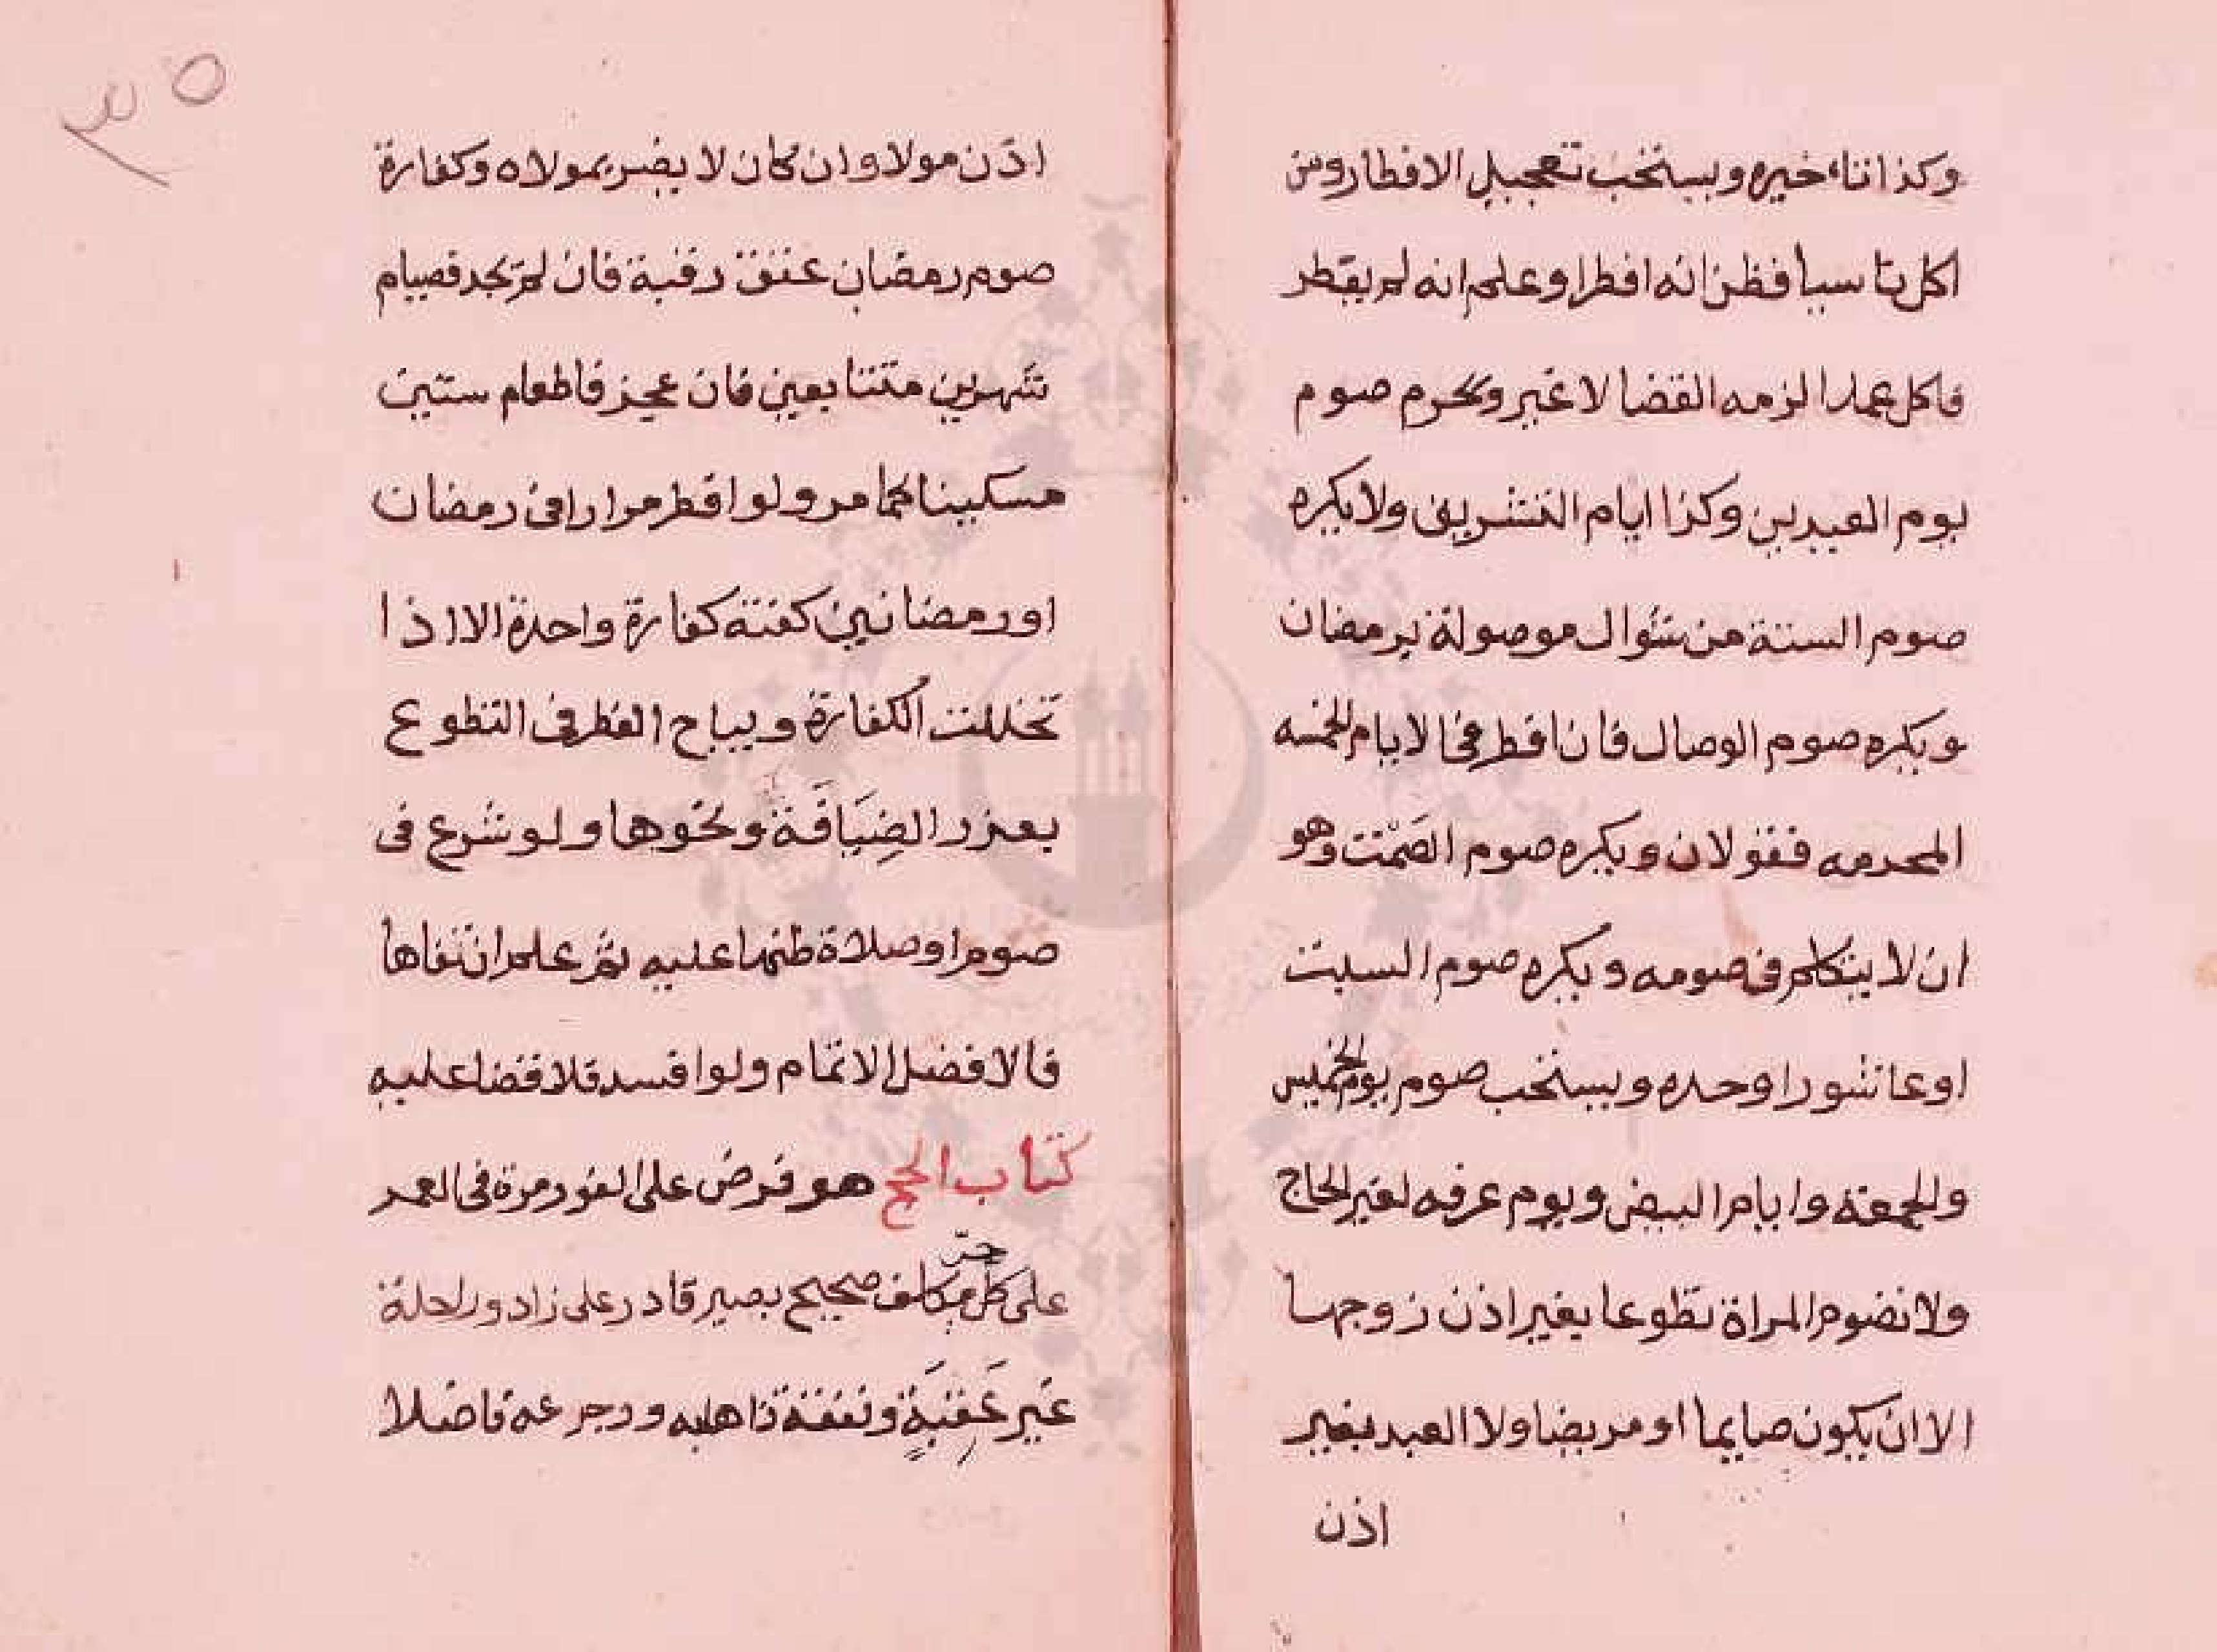 وكذا تاخيره ويستحب تعجيل الافطار ومن
اكل ناسيا فظن انه افطر او علم انه لم يفطر
فاكل عمدا لزمه القضا لا غير ويحرم صوم
يوم العيدين وكذا ايام التشريق ولا يكره
صوم الستة من شوال موصولة برمضان
ويكره صوم الوصال فان افطر في الايام الخمسه
المحرمه فقولان ويكره صوم الصَّمْت وهو
ان لا يتكلم في صومه ويكره صوم السبت
او عاشورا وحده ويستحب صوم يوم الخميس
والجمعة وايام البيض ويوم عرفه لغير الحاج
ولا تصوم المراة تطوعا بغير اذن زوجها
الا ان يكون صايما او مريضا ولا العبد بغير
اذن
٣٥
اذن مولاه وان كان لا يضر بمولاه وكفارة
صوم رمضان عتق رقبة فان لم يجد فصيام
شهرين متتابعين فان عجز فاطعام ستين
مسكينا كما مر ولو افطر مرارا في رمضان
او رمضانين كفته كفارة واحدة الا اذا
تخللت الكفارة ويباح الفطر في التطوع
بعذر الضِيَافَة ونحوها ولو شرع في
صوم او صلاة ظنها عليه ثم علم انتفاها
فالافضل الاتمام ولو افسد فلا قضا عليه
كتاب الحج هو فرض على الفور مرة في العمر
على كل حر مكلف صحيح بصير قادر على زاد وراحلة
غير عَقِبَةٍ ونفقة ذاهبه ورجوعه فاضلا